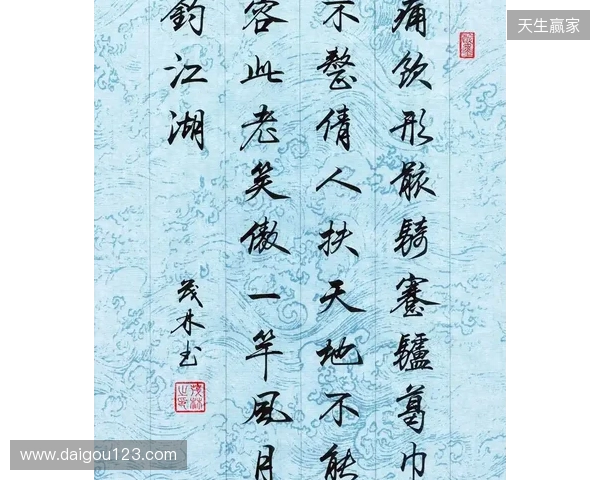 天生赢家
痛飲形骸騎蹇驢葛巾
不整倩人扶天地不能
容此老笑傲一竿風月
釣江湖
茂林书
www.daigou123.com